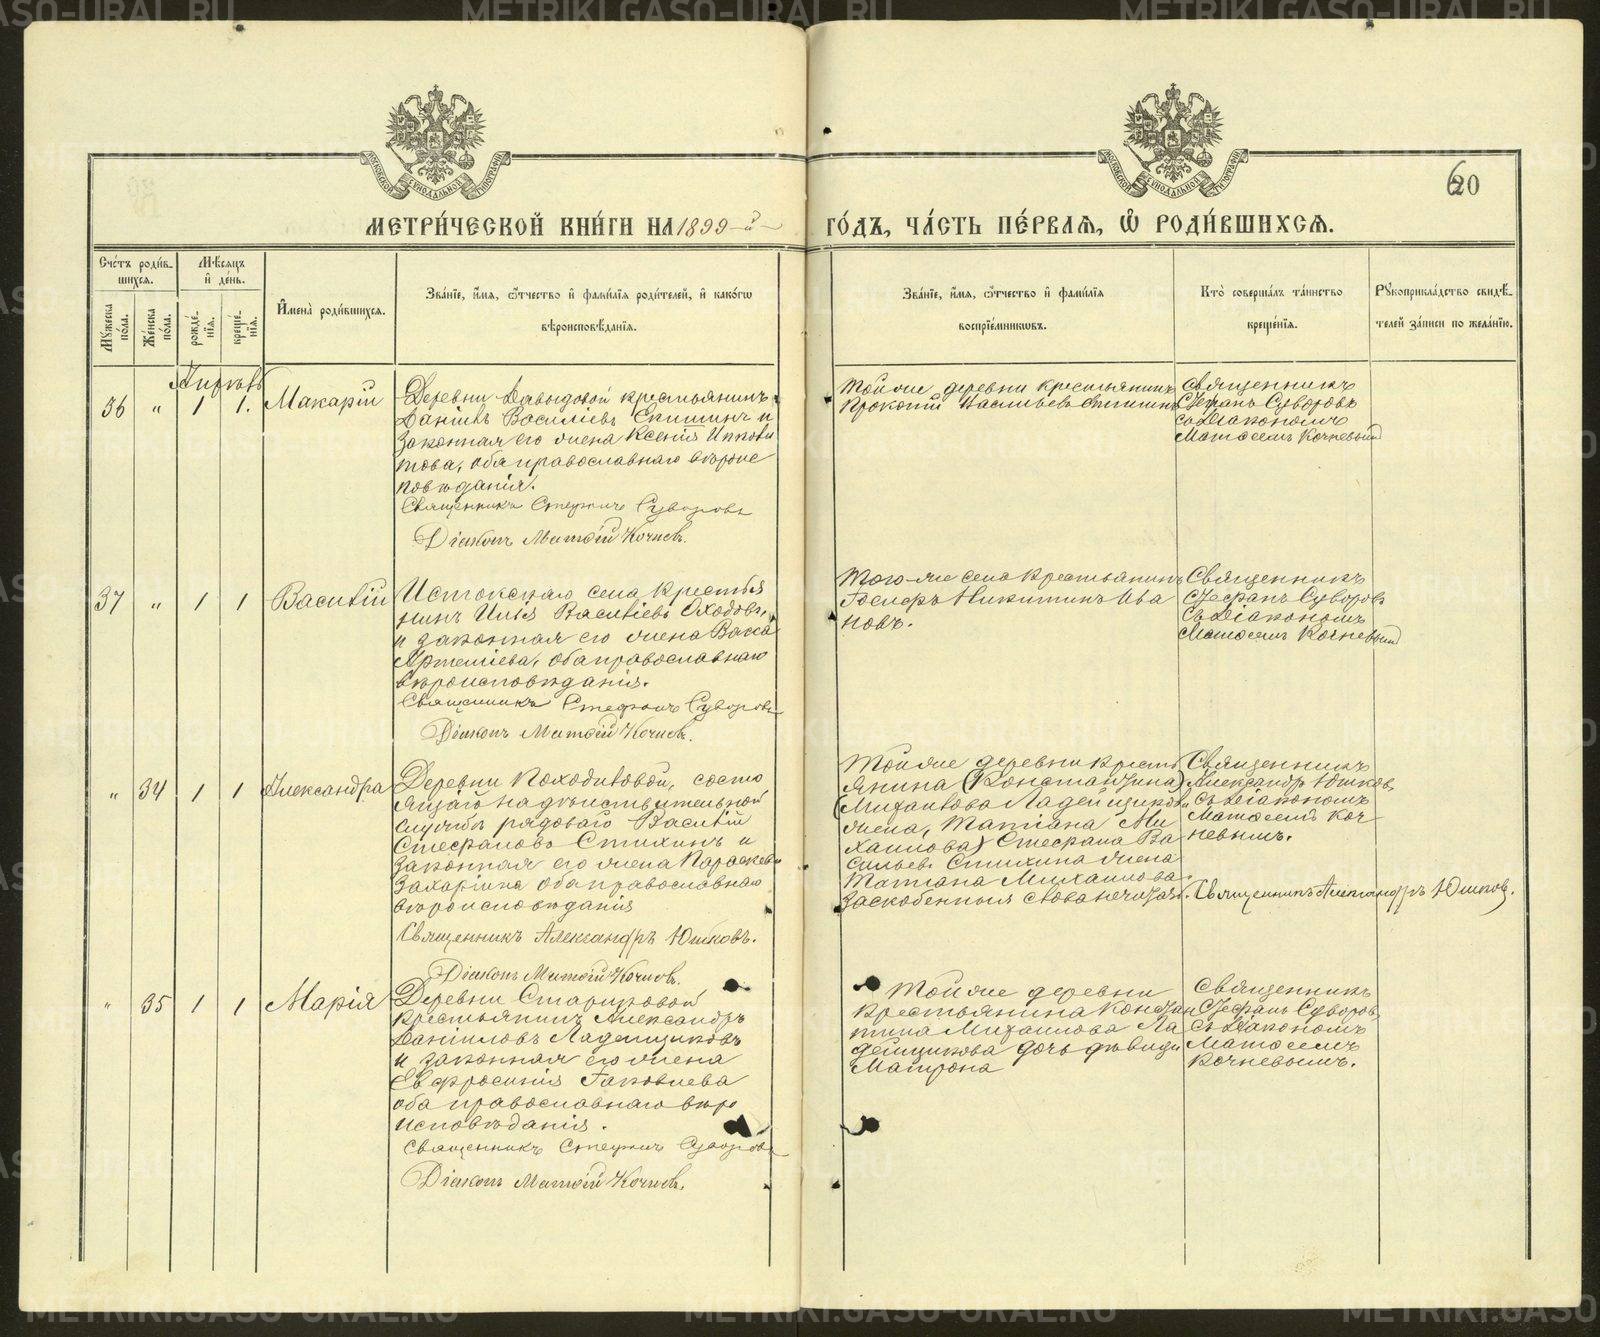 METRIKI.GASO-URAL.RU
МОСКОВСКОЙ СѴНОДАЛЬНОЙ ТИПОГРАФІИ
МОСКОВСКОЙ СѴНОДАЛЬНОЙ ТИПОГРАФІИ
20
МЕТРИ́ЧЕСКОЙ КНИ́ГИ НА 1899-й
ГО́ДЪ, ЧА́СТЬ ПЕ́РВАЯ, Ѽ РОДИ́ВШИХСЯ.
Сче́тъ роди́вшихся.
Мꙋ́жеска по́ла.
Же́нска по́ла.
Мѣ́сяцъ и҆ де́нь.
рожде́нїя.
креще́нїя.
И҆мена̀ роди́вшихся.
Зва́нїе, и҆́мя, ѻ҆́тчество и҆ фами́лїя роди́телей, и҆ како́гѡ
вѣроисповѣ́данїя.
Зва́нїе, и҆́мя, ѻ҆́тчество и҆ фами́лїя
воспрїе́мникѡвъ.
Кто̀ соверша́лъ та́инство
креще́нїя.
Рꙋкоприкла́дство свидѣ́телей за́писи по жела́нїю.
Апрѣль
36 " 1 1. Макарій
Деревни Давыдовой крестьянинъ
Даніилъ Василіевъ Спишинъ и
законная его жена Ксенія Иппoли
това, оба православнаго вѣроис
повѣданія.
Священникъ Стефанъ Суворовъ
Діаконъ Матѳій Кочневъ.
Той же деревни крестьянинъ
Прокопій Васильевъ Спишинъ
Священникъ
Стефанъ Суворовъ
съ Діакономъ
Матѳеемъ Кочневымъ
37 " 1 1 Василій
Истокскаго села крестья
нинъ Илія Василіевъ Оходовъ,
и законная его жена Васса
Артеміева, оба православнаго
вѣроисповѣданія.
Священникъ Стефанъ Суворовъ
Діаконъ Матѳій Кочневъ.
Того-же села крестьянинъ
Іосифъ Никитинъ Ива
новъ.
Священникъ
Стефанъ Суворовъ
Съ Діакономъ
Матѳеемъ Кочневымъ
" 34 1 1 Александра
Деревни Походиловой, состо
ящаго на дѣйствительной
службѣ рядоваго Василій
Стефановъ Стихинъ и
законная его жена Параскева
Захаріина оба православнаго
вѣроисповѣданія
Священникъ Александръ Юшковъ.
Діаконъ Матѳій Кочневъ.
Той же деревни кресть
янина (Константина)
(Михаилова Ладейщикова
жена, Татіана Ми
хаилова) Стефана Ва
сильев. Стихина жена
Татіана Михаилова.
Заскобенныя слова не читать. Священникъ Александръ Юшковъ.
Священникъ
Александръ Юшковъ
съ Діакономъ
Матѳеемъ Коч
невымъ.
" 35 1 1 Марія
Деревни Стариковой
крестьянинъ Александръ
Даніиловъ Ладейщиковъ
и законная его жена
Евфросинія Іаковлева
оба православнаго вѣро
исповѣданія.
Священникъ Стефанъ Суворовъ
Діаконъ Матѳій Кочневъ.
Той же деревни
крестьянина Констан
тина Михаилова Ла
дейщикова дочь дѣвица
Матрона
Священникъ
Стефанъ Суворовъ,
съ Діакономъ
Матѳеемъ
Кочневымъ.